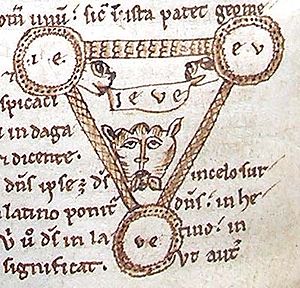 unū: sic̄ ista patet geome
I. E.
E V
I E V E
spicaci
in daga
dicente.
dn̄s ipse
in celo sur
latino ponit̄ dn̄s: in he
VE
d̄s in la tino: in
significat. ut aut̄